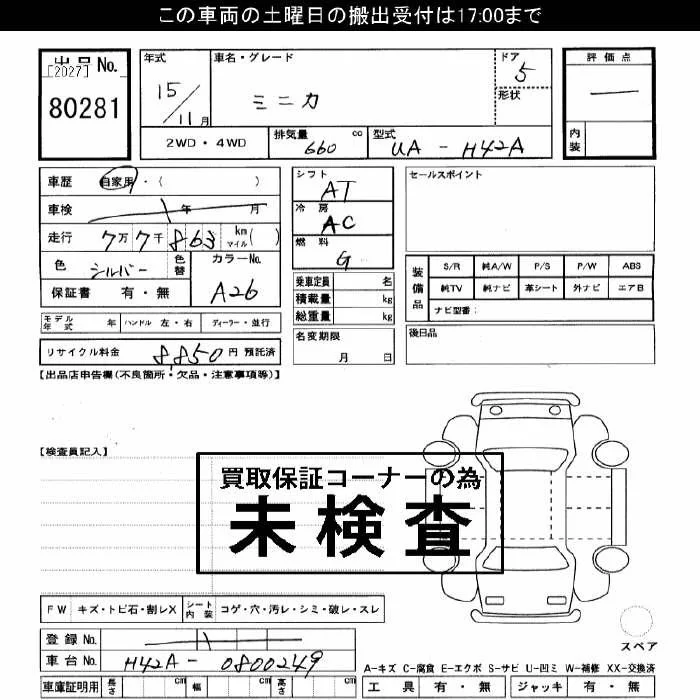 この車両の土曜日の搬出受付は17:00まで
出品 No.
[2027]
80281
年式
15/11月
車名・グレード
ミニカ
ドア
5
形状
評価点
—
内装
2WD・4WD
排気量 cc
660
型式
UA - H42A
車歴 自家用・( )
車検 年 月
走行 7万7千863 km マイル ( )
色 シルバー 色替
カラーNo.
A26
保証書 有・無
モデル年式 年 ハンドル 左・右 ディーラー・並行
リサイクル料金 8,850円 預託済
シフト
AT
冷房
AC
燃料
G
乗車定員 名
積載量 kg
総重量 kg
名変期限
月 日
セールスポイント
装備品
S/R 純A/W P/S P/W ABS
純TV 純ナビ 革シート 外ナビ エアB
ナビ型番:
後日品
【出品店申告欄(不良箇所・欠品・注意事項等)】
【検査員記入】
買取保証コーナーの為
未検査
FW キズ・トビ石・割レX シート内装 コゲ・穴・汚レ・シミ・破レ・スレ
登録 No.
車台 No. H42A - 0800249
車庫証明用 長さ cm 幅 cm 高さ cm
スペア
A-キズ C-腐食 E-エクボ S-サビ U-凹ミ W-補修 XX-交換済
工具 有・無 ジャッキ 有・無